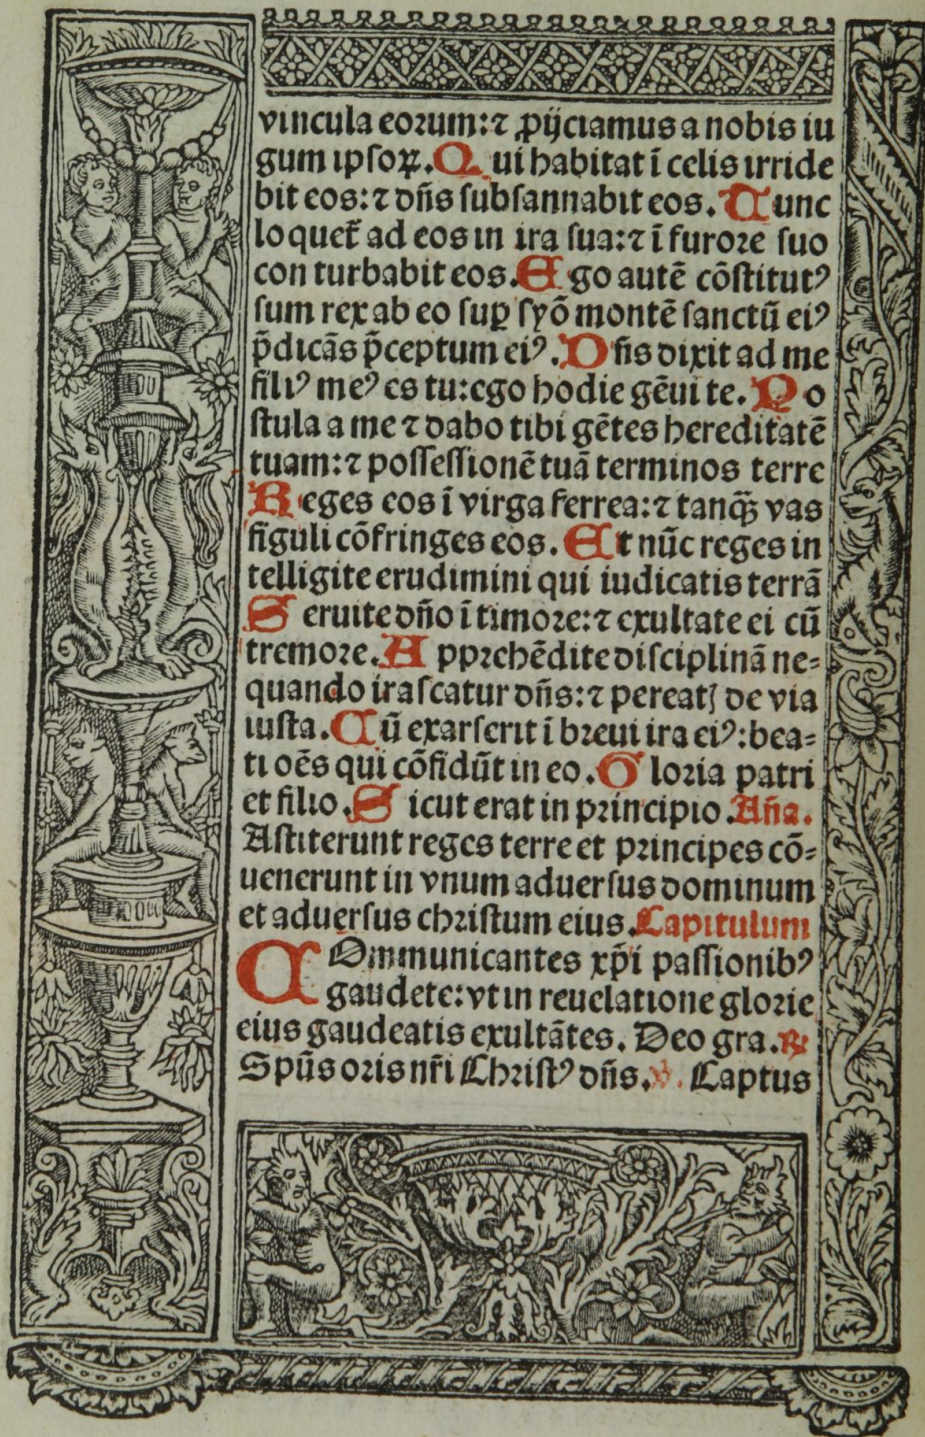 vincula eorum:⁊ ꝓijciamus a nobis iu
gum ipsoꝝ. Qui habitat ī celis irride
bit eos:⁊ dn̄s subsannabit eos. Tunc
loquet᷑ ad eos in ira sua:⁊ ī furore suo
con turbabit eos. Ego autē cōstitutꝰ
sum rex ab eo suꝑ syō montē sanctū eiꝰ
p̄dicās p̄ceptum eiꝰ. Dn̄s dixit ad me
filiꝰ meꝰ es tu:ego hodie gēui te. Po
stula a me ⁊ dabo tibi gētes hereditatē
tuam:⁊ possessionē tuā terminos terre
Reges eos ī virga ferrea:⁊ tanqꝫ̄ vas
figuli cōfringes eos. Et nūc reges in
telligite erudimini qui iudicatis terrā
Seruite dn̄o ī timore:⁊ exultate ei cū
tremore. Apprehēdite disciplinā ne⸗
quando irascatur dn̄s:⁊ pereatꝭ de via
iusta. Cū exarserit ī breui ira eiꝰ:bea⸗
ti oēs qui cōfidūt in eo. Gloria patri
et filio. Sicut erat in principio. Añа.
Astiterunt reges terre et principes cō⸗
uenerunt in vnum aduersus dominum
et aduersus christum eius. Capitulum
COmmunicantes xp̄i passionibꝰ
gaudete:vt in reuelatione glorie
eius gaudeatis exultātes. Deo gra. ℟
Spūs oris nr̄i Christꝰ dn̄s. ℣. Captus